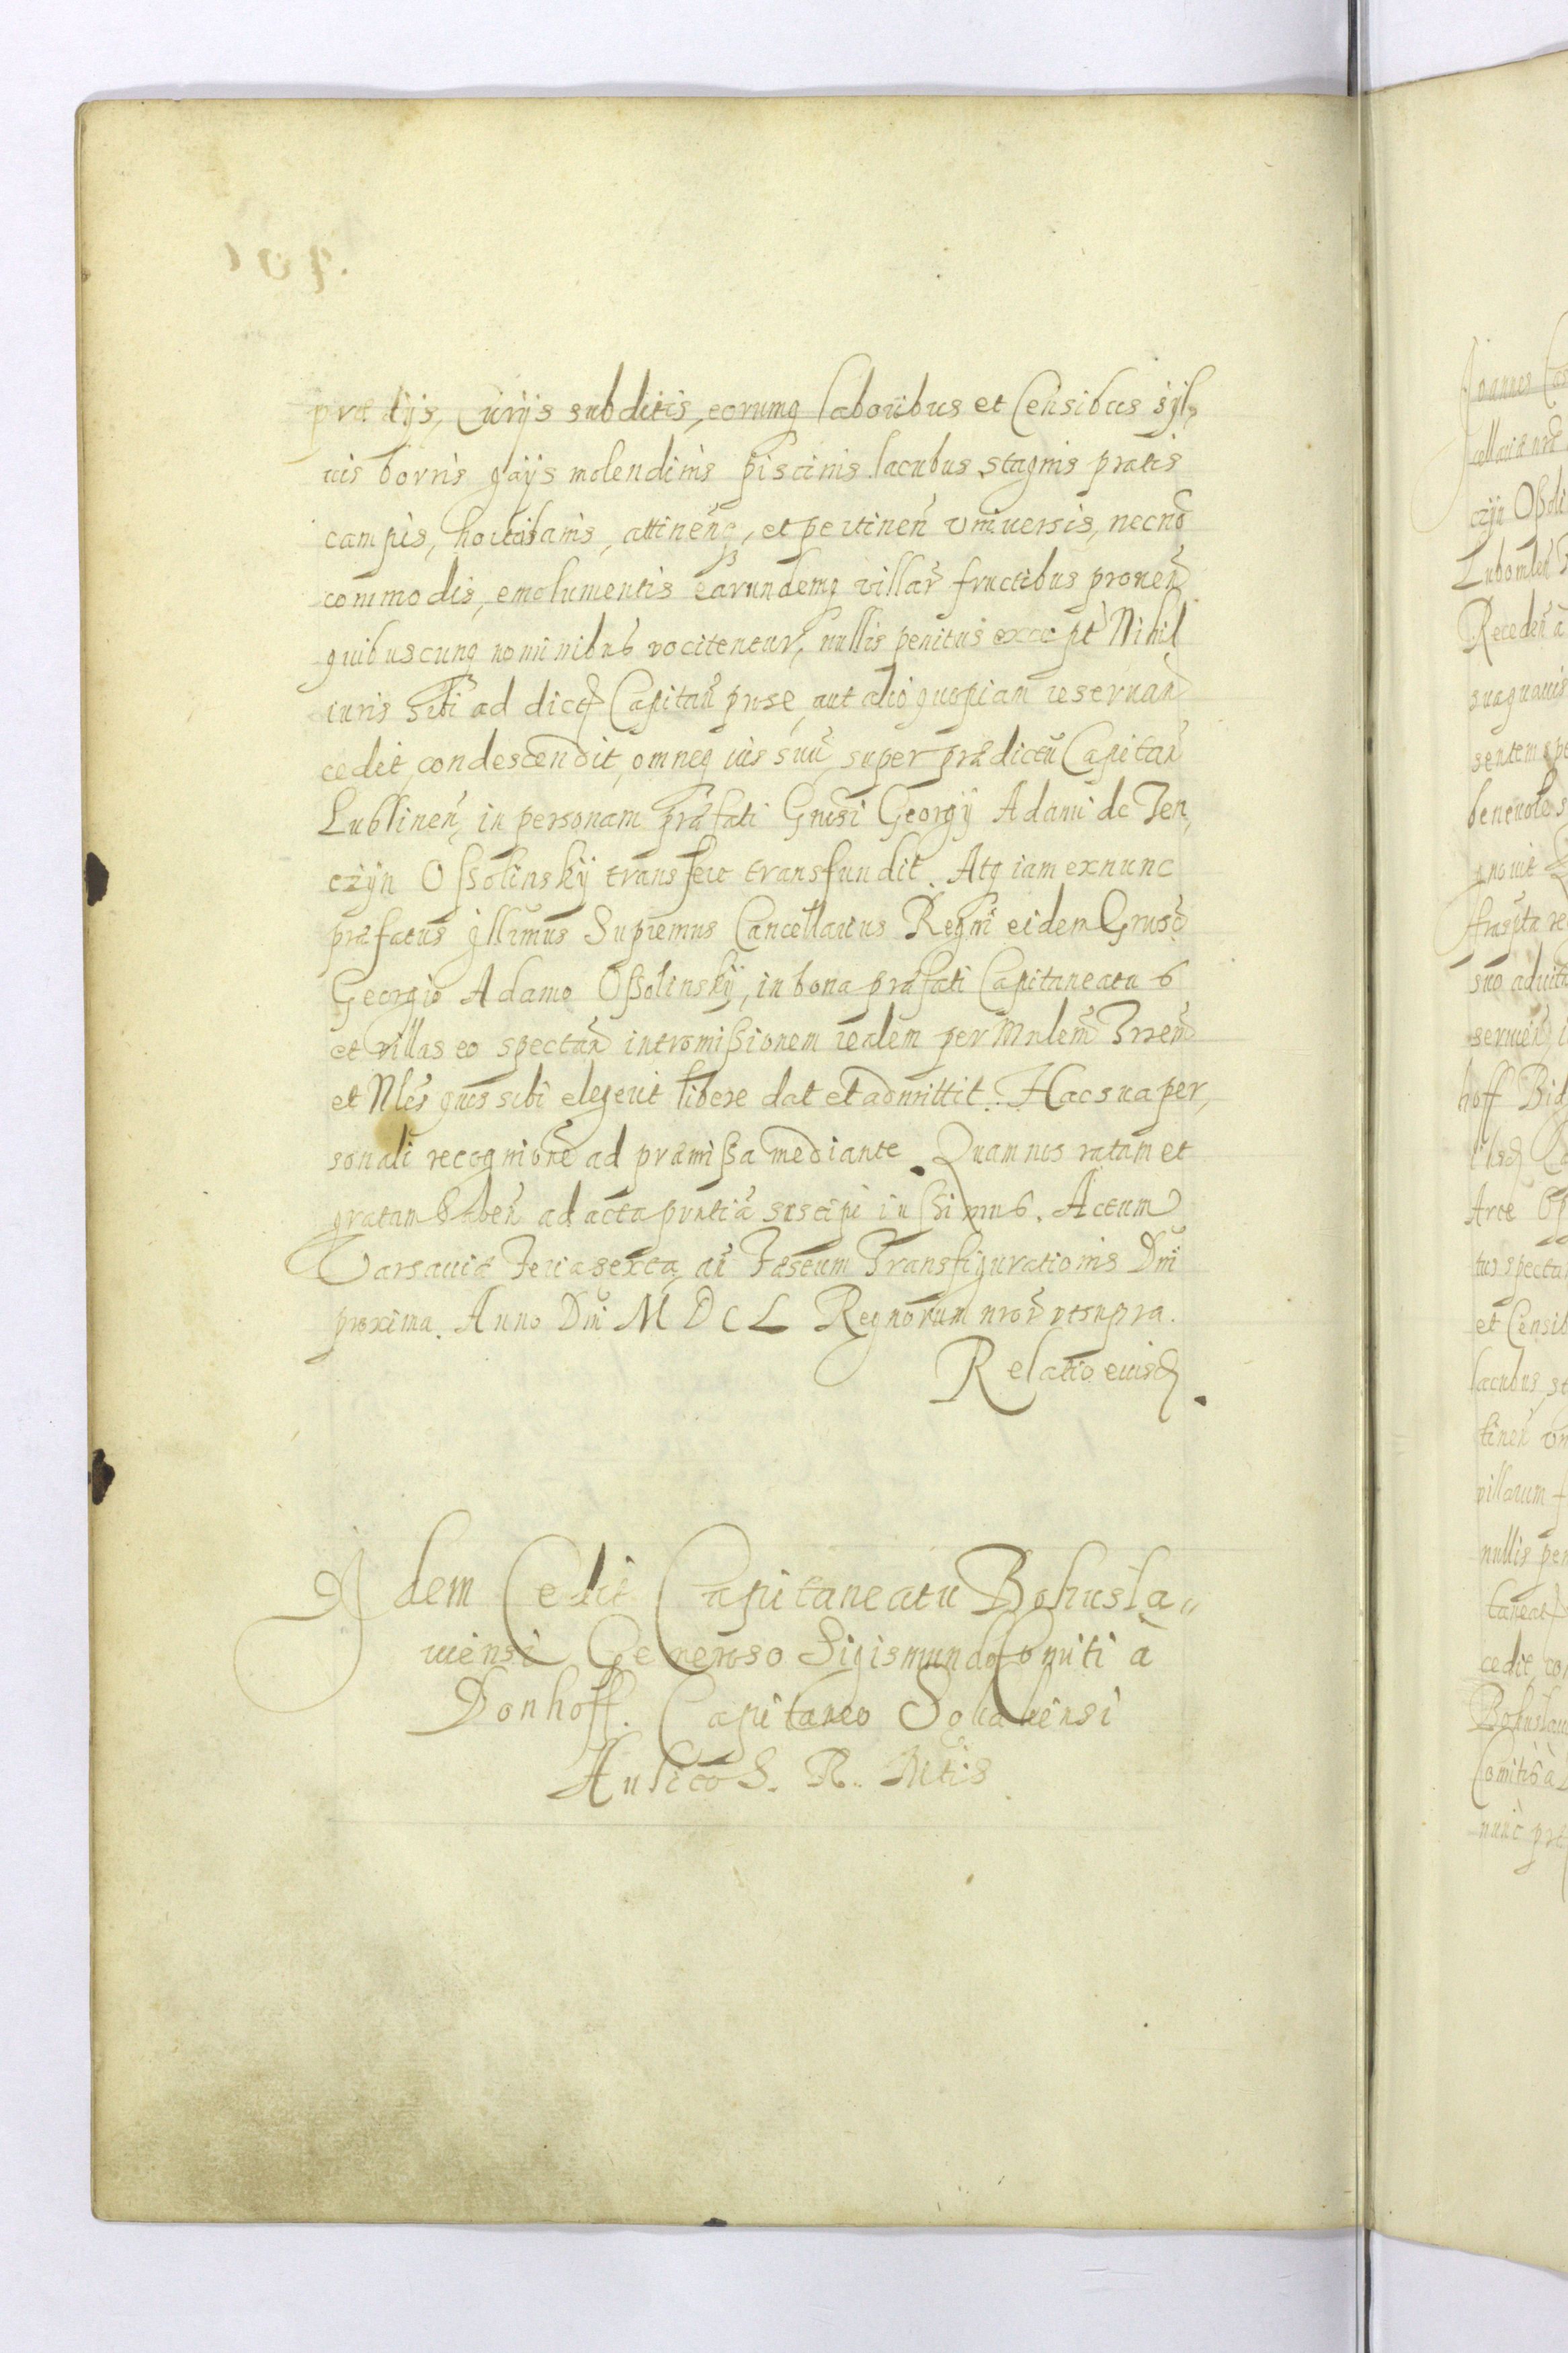 prædijs, Curijs subditis, eorumq laboribus et Censibus syl,
uis borris gajis molendinis piscinis lacubus stagnis pratis
campis, hortulanis, attinenq, et pertinen vniuersis, necno
commodis, emolumentis earundemq villar fructibus prouen
quibuscunq nominibus vocitentur, nullis penitus except Nihil
iuris sibi ad dict Capitan pro se, aut alio quopiam reseruan
cedit, condescendit, omneq ius suu, super prædictu Capitan
Lublinen, in personam præfati Gnosi Georgij Adami de Ten,
czyn Ossolinskij transfert transfundit. Atq iam exnunc
præfatus Illimus Supremus Cancellarius Regni eidem Gnoso
Georgio Adamo Ossolinskij, in bona præfati Capitaneatus
et villas eo spectan intromissionem realem per Mnlem Trrem
et Nles quos sibi elegerit libere dat et admittit. Hac sua per,
sonali recognione ad præmissa mediante. Quam nos ratam et
gratam haben ad acta pnntia suscipi iussimus. Actum
Varsauiæ Feria sexta an Festum Transfigurationis Dni
proxima. Anno Dni MDCL Regnorum nror vt supra.
Relatio eiusd.
Idem Cedit Capitaneatu Bohusla„
uiensi Generoso Sigismundo Comiti à
Donhoff. Capitaneo
Aulico S. R. Mtis
Joannes
czyn
Lubomlen
Receden à
suaq
sentem
beneuole
gnouit
suo aduit
hoff
Arce
tus spectan
et Censib
lacubus, st
tinen vn
villarum f
nullis pen
taneat
cedit, con
Bohuslau
Comitis à
nunc præ